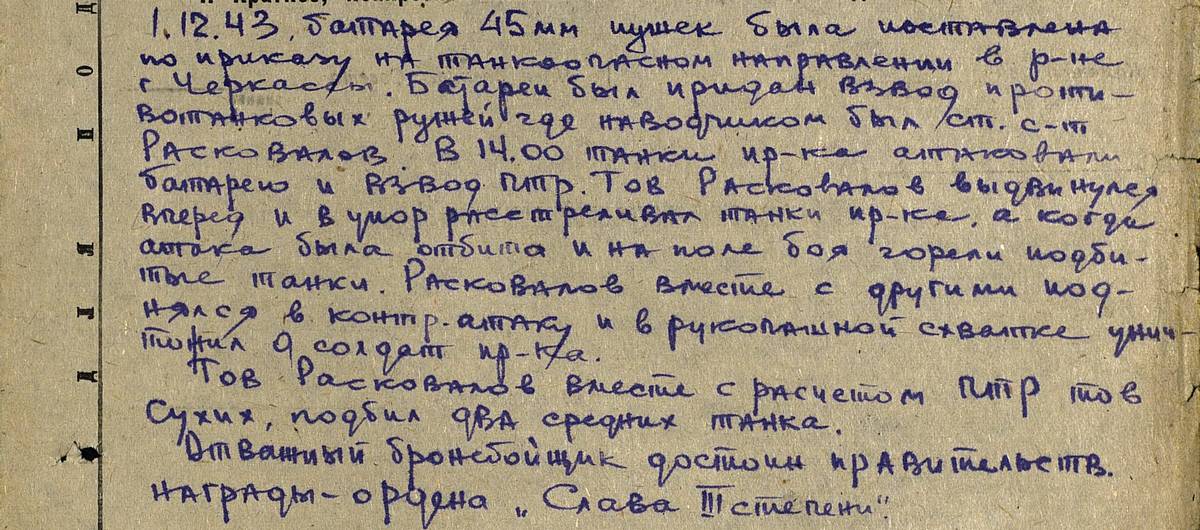 1.12.43, батарея 45мм пушек была поставлена
по приказу на танкоопасном направлении в р-не
г Черкассы. Батареи был придан взвод проти-
вотанковых ружей где наводчиком был ст. с-т
Расковалов. В 14.00 танки пр-ка атаковали
батарею и взвод ПТР. Тов Расковалов выдвинулся
вперед и в упор расстреливал танки пр-ка, а когда
атака была отбита и на поле боя горели подби-
тые танки. Расковалов вместе с другими под-
нялся в контр.атаку и в рукопашной схватке унич-
тожил 9 солдат пр-ка.
Тов Расковалов вместе с расчетом ПТР тов
Сухих, подбил два средних танка.
Отважный бронебойщик достоин правительств.
награды - ордена „Слава III степени".